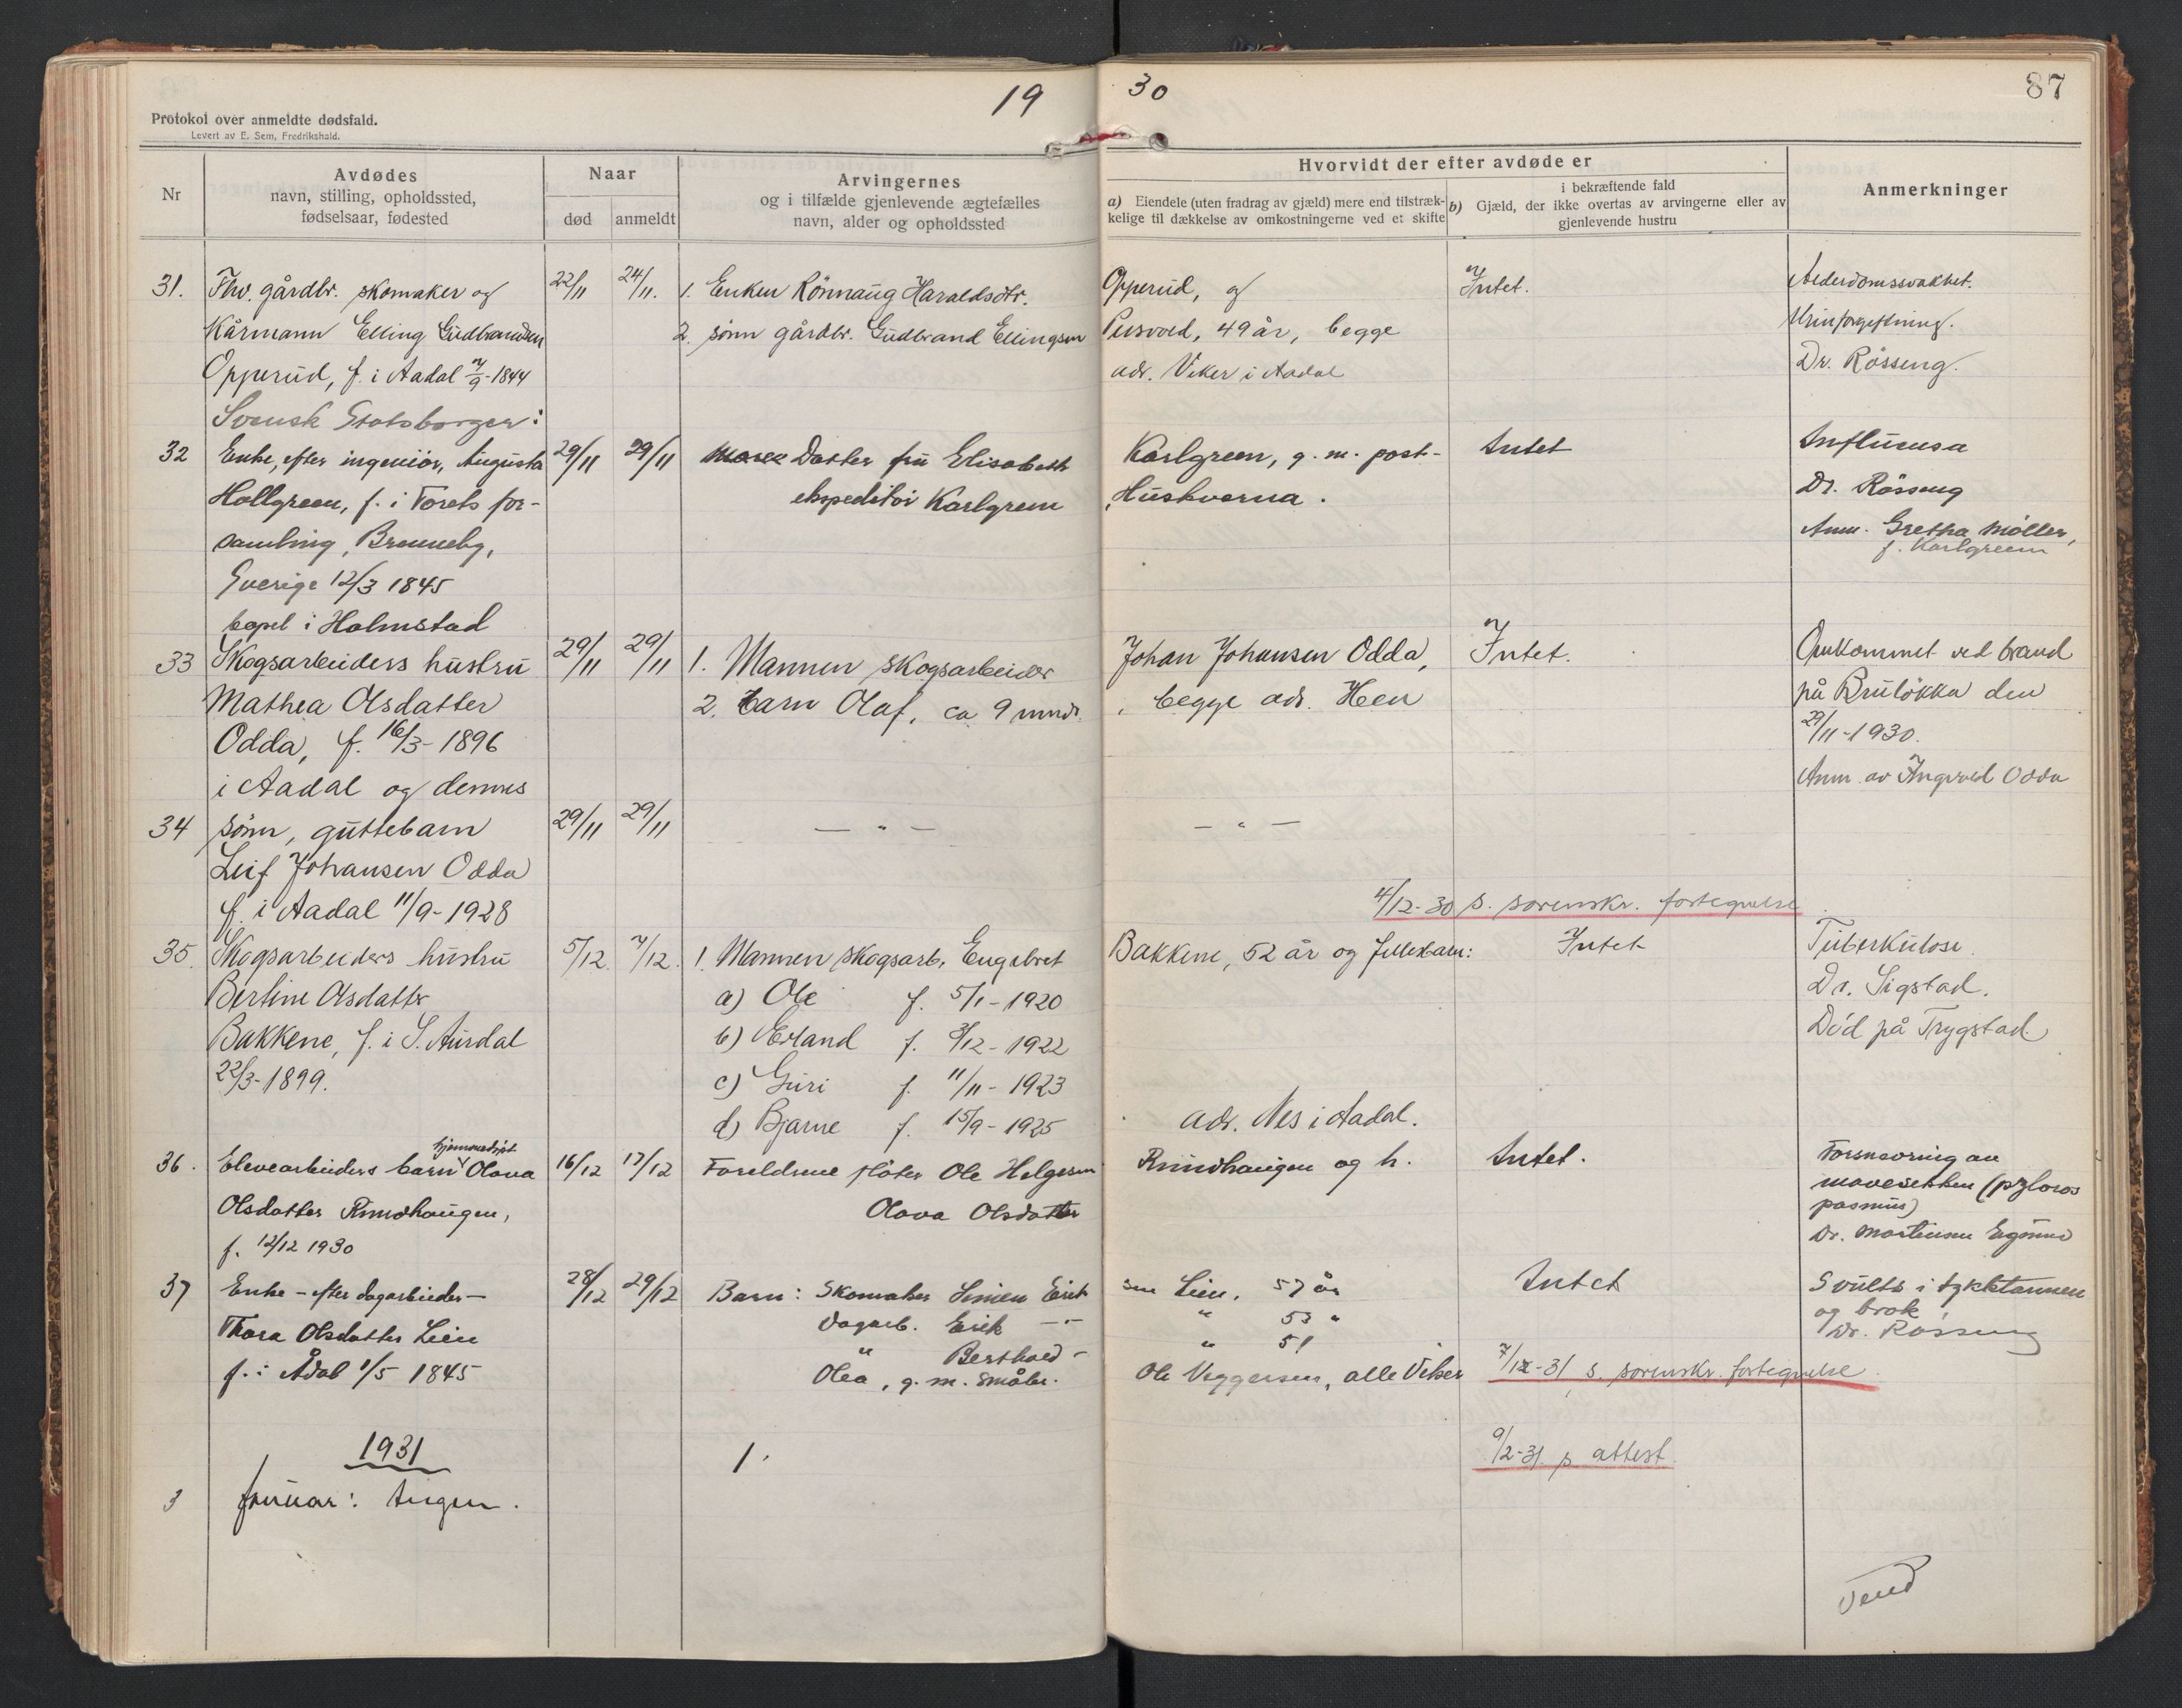 19 30
87
Protokol over anmeldte dødsfald.
Levert av E. Sem, Fredrikshald.
Nr
Avdødes
navn, stilling, opholdssted,
fødselsaar, fødested
Naar
død
anmeldt
Arvingernes
og i tilfælde gjenlevende ægtefælles
navn, alder og opholdssted
Hvorvidt der efter avdøde er
a) Eiendele (uten fradrag av gjæld) mere end tilstræk-
kelige til dækkelse av omkostningerne ved et skifte
i bekræftende fald
b) Gjæld, der ikke overtas av arvingerne eller av
gjenlevende hustru
Anmerkninger
31. Fhv. gårdbr. skomaker og 22/11 24/11. 1. Enken Rönnaug Haraldsdtr. Opperud, og Intet. Alderdomssvakhet.
Kårmann Elling Gudbrandsen 2. sönn gårdbr. Gudbrand Ellingsen Pusvold, 49 år, begge Urinforgiftning.
Opperud, f. i Aadal 7/9-1844 adr. Viker i Aadal Dr. Rösseng.
Svensk Statsborger:
32 Enke, efter ingeniör, Augusta 29/11 29/11 Datter fru Elisabeth Karlgreen, g. m. post- Intet Influensa
Hallgreen, f. i Torets for- ekspeditör Karlgreen Huskvarna. Dr. Rösseng
samling, Brenneby, Anm. Gretha Möller,
f. Karlgreen
Sverige 12/3 1845
bopel i Halmstad
33 Skogsarbeiders hustru 29/11 29/11 1. Mannen skogsarbeider Johan Johansen Odda, Intet. Omkommet ved brand
Mathea Olsdatter 2. barn Olaf, ca 9 mndr. begge adr. Hen på Brulökka den
Odda, f. 16/3-1896 29/11-1930.
i Aadal og dennes Anm. av Ingvald Odda
34 sönn, guttebarn 29/11 29/11 — " — — " —
Leif Johansen Odda
f. i Aadal 11/9-1928 4/12-30 s. sorenskr. fortegnelse
35. Skogsarbeiders hustru 5/12. 7/12. 1. Mannen skogsarb. Engebret Bakkene, 52 år og fellesbarn: Intet Tuberkulose.
Bertine Olsdatter a) Ole f. 5/1-1920 Dr. Sigstad.
Bakkene, f. i S. Aurdal b) Erland f. 3/12-1922 Död på Trygstad
22/3-1899. c) Guri f. 11/11-1923
d) Bjarne f. 15/9-1925 adr. Nes i Aadal.
hjemmedöpt
36. Elevearbeiders barn Olava 16/12 17/12 Foreldrene flöter Ole Helgesen Rundhaugen og h. Intet. Forsnevring av
Olsdatter Rundhaugen, Olava Olsdatter mavesekken (pyloros
pasmus)
f. 12/12 1930 Dr. Martinsen Eggmoe
37 Enke - efter dagarbeider - 28/12 29/12 Barn: Skomaker Simen Erik sen Lien, 57 år Intet Svulst i tykktarmen
og brok
Thora Olsdatter Lien Dagarb. Erik — " — " 53 " Dr. Rösseng
" Berthold - " 51
f. i Ådal 1/5 1845 Olea, g. m. småbr. Ole Viggersen, alle Viker 7/12-31 s. sorenskr. fortegnelse
9/2-31. s. attest
1931
1.
3 januar: Ingen.
Vend